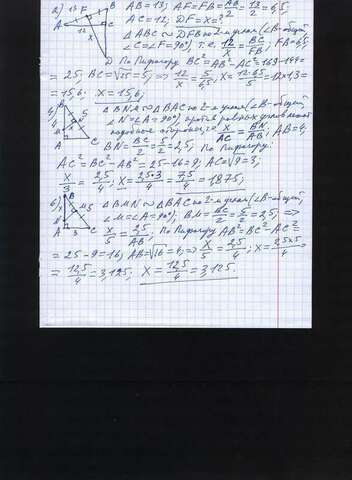 2) AB=13; AF=FB=AB/2=13/2=6,5;
AC=12; DF=x=?
△ABC ∾ △DFB по 2-м углам (∠B-общий
∠C=∠F=90°), т.е. 12/x = BC/FB; FB=6,5
По Пифагору BC²=AB²-AC²=169-144=
=25; BC=√25=5; ⇒ 12/x = 5/6,5; x=12·6,5/5=12·1,3=
=15,6; x=15,6;
4) △BNM ∾ △BAC по 2-м углам (∠B-общий
∠N=∠A=90°), против равных углов лежат
подобные стороны, т.е. x/AC = BN/AB; AB=4;
BN=BC/2=5/2=2,5; По Пифагору:
AC²=BC²-AB²=25-16=9; AC=√9=3;
x/3 = 2,5/4; x=2,5·3/4=7,5/4=1,875;
6) △BMN ∾ △BAC по 2-м углам (∠B-общий,
∠M=∠A=90°); BM=BC/2=5/2=2,5; ⇒
x/5 = 2,5/AB; По Пифагору AB²=BC²-AC²=
=25-9=16; AB=√16=4; ⇒ x/5 = 2,5/4; x=2,5·5/4=
=12,5/4=3,125; x=12,5/4=3,125.